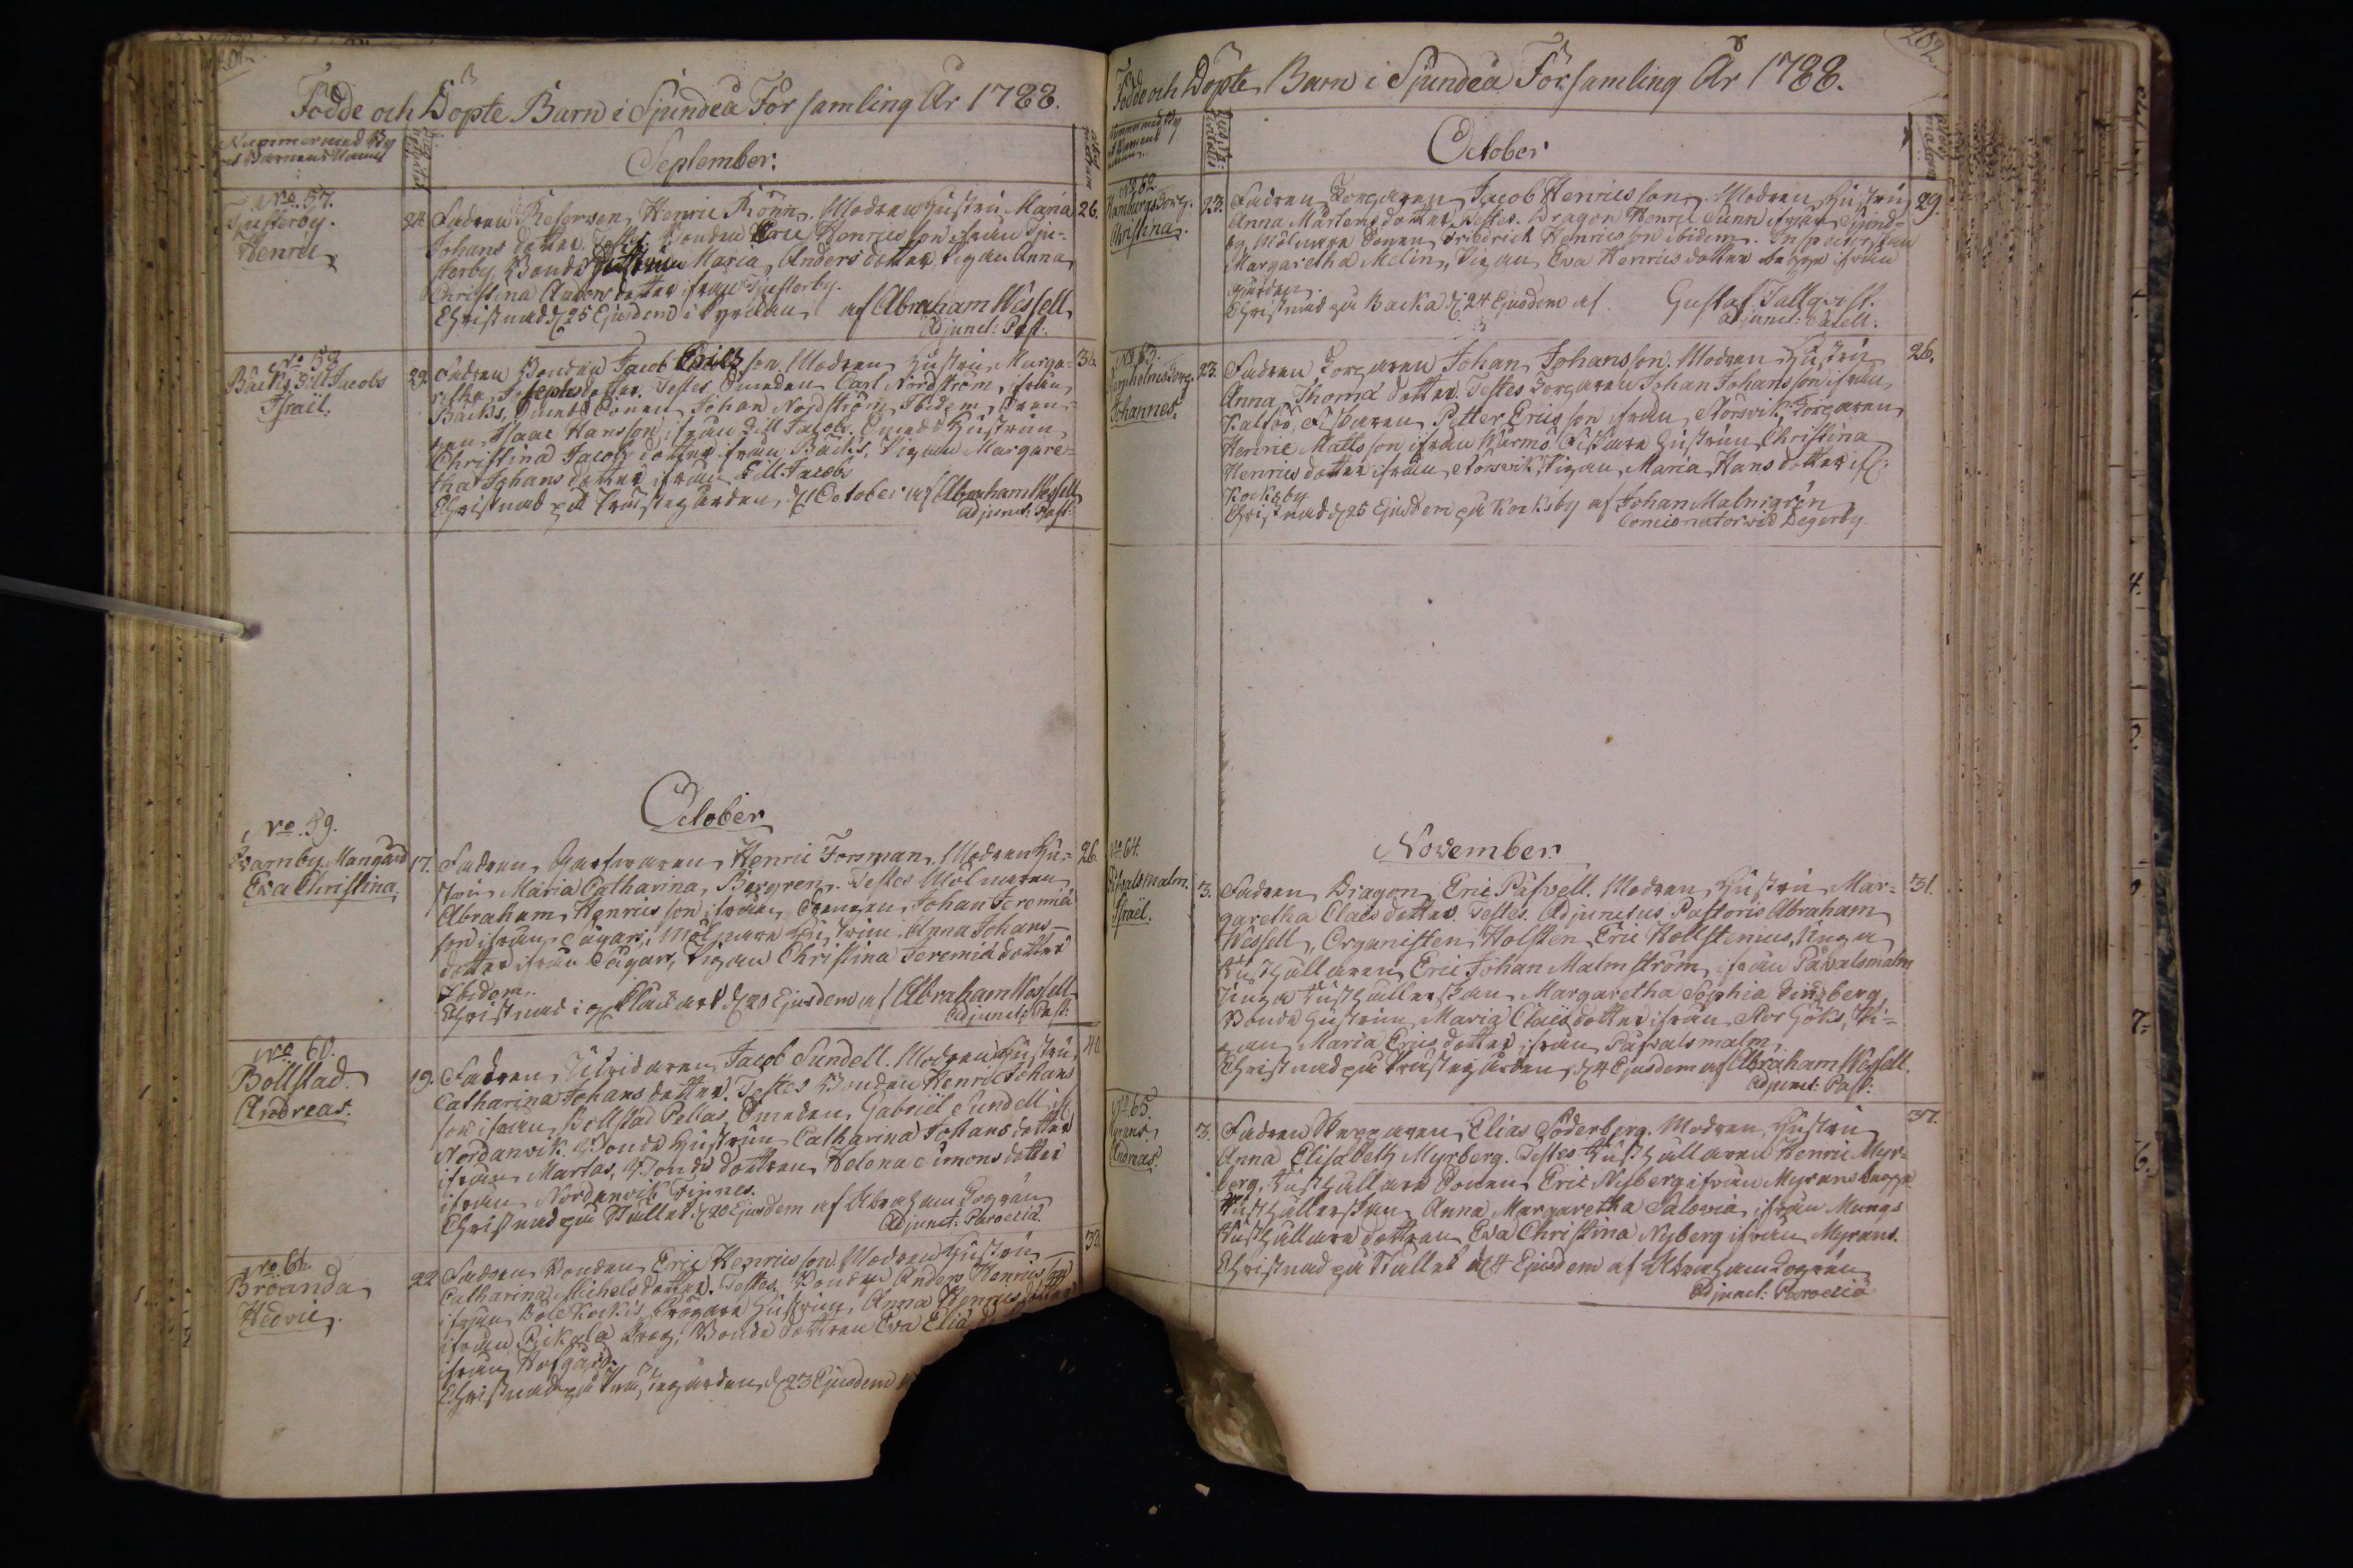 201.
Födde och Döpte Barn i Sjundeå Församling År 1788.
Nummer med By
och Barnens Namn
September.
No. 57.
Tjusterby.
Henric
24. Fadren Reserven Henric Rönn. Modren Hustru Maria 26.
Johans dotter. Testes Bonden Eric Henricsson ifrån Tju-
sterby, Bonde Maria Anders dotter, Pigan Anna
Christina Anders dotter ifrån Tjusterby.
Christnad d. 25 Ejusdem i Kyrckan af Abraham Wessell
Adjunct: Past:
No. 58.
Bäcks Lill Jacobs
Israël.
29. Fadren Bonden Jacob Ericsson. Modren Hustru Marga-
retha Josephs dotter. Testes Smeden Carl Nordström ifrån
Bäcks, Smeds Sonen Johan Nordström Ibidem, Dren-
gen Isaac Hansson ifrån Lill Jacobs. Smeds Hustrun
Christina Jacobs dotter ifrån Bäcks, Pigan Margare-
tha Johans dotter ifrån Lill Jacobs
Christnad på Prästegården d. 1 October af Abraham Wessell
Adjunct: Past:
October
No. 59.
Qvarnby Mangård
Eva Christina.
17. Fadren Henric Forsman. Modren Hu- 26.
stru Maria Catharina Bergren. Testes Mölnaren
Abraham Henricsson ifrån Drengen Johan Jeremiæ
son ifrån Sågars, Mölnare Hustrun Anna Johans
dotter ifrån Sågars, Pigan Christina Jeremiæ dotter
Ibidem.
Christnad i d. 20 Ejusdem af Abraham Wessell
Adjunct: Past:
No. 60.
Böllstad
Andreas.
19. Fadren Jacob Sundell. Modren Hustru 40.
Catharina Johans dotter. Testes Bonden Henric Johans
son ifrån Böllstad Pellas, Smeden Gabriël Sundell if
Nordanvik. Bonde Hustrun Catharina Johans dotter
ifrån Martas, Bonde dottren Helena Simons dotter
ifrån Nordanvik Finnes.
Christnad på Stället d. 20 Ejusdem af Abraham Fogrén
Adjunct: Paroeciæ.
No. 61.
Bröanda
Hedvic.
22. Fadren Bonden Eric Henricsson. Modren Hustru 33.
Catharina Michels dotter. Testes Bonden Anders Henricsson
ifrån Böle Kockis, Hustrun Anna Henrics dotter
ifrån Pickala Bonde dottren Eva Eliæ
ifrån Hofgård.
Christnad på Prästegården d. 23 Ejusdem
202.
Födde och Döpte Barn i Sjundeå Församling År 1788.
October
No 62.
Christina.
23. Fadren Torparen Jacob Henricsson. Modren Hustru 29.
Anna Mårtens dotter. Testes. Dragon Henric Sunn ifrån Sjund-
by, Mölnare Sonen Friedrich Henricsson ibidem. Inspectorskan
Margaretha Melin, Pigan Eva Henrics dotter begge ifrån
gården.
Christnad på Backa d. 24 Ejusdem af Gustaf Tallqvist.
No 63.
Johannes.
23. Fadren Torparen Johan Johansson. Modren Hustru 26.
Anna Thomæ dotter. Testes Torparen Johan Johansson ifrån
Kalföö, Fiskaren Petter Ericsson ifrån Norsvik, Torparen
Henric Mattsson ifrån Wärmö, Fiskare Hustrun Christina
Henrics dotter ifrån Norsvik, Pigan Maria Hans dotter if:
Kocksby
Christnad d. 25 Ejusdem på Kocksby af Johan Malmgrén
Concionator vid Degerby.
November.
No. 64.
Påvalsmalm.
Israël.
3. Fadren Dragon Eric Påfvell. Modren Hustru Mar- 31.
garetha Claes dotter. Testes. Adjunctus Pastoris Abraham
Wessell, Organisten Holsten Eric Hollstenius, Unga
Rusthållaren Eric Johan Malmström ifrån Påvalsmalm
Unga Rusthållerskan Margaretha Sophia Lindberg
Bonde Hustrun Maria Claes dotter ifrån Stor Göks, Pi-
gan Maria Erics dotter ifrån Påfvalsmalm.
Christnad på Prästegården d. 4 Ejusdem af Abraham Wessell.
Adjunct: Past:
No 65.
Myrans
Andreas.
3. Fadren Elias Söderberg. Modren Hustru 37.
Anna Elisabeth Myrberg. Testes Rusthållaren Henric Myr-
berg, Rusthållare Sonen Eric Nyberg ifrån Myrans begge
Rusthållerskan Anna Margaretha Salovia ifrån Mungs
Rusthållare dottren Eva Christina Nyberg ifrån Myrans.
Christnad på Stället d. 4 Ejusdem af Abraham Fogrén
Adjunct: Paroeciæ